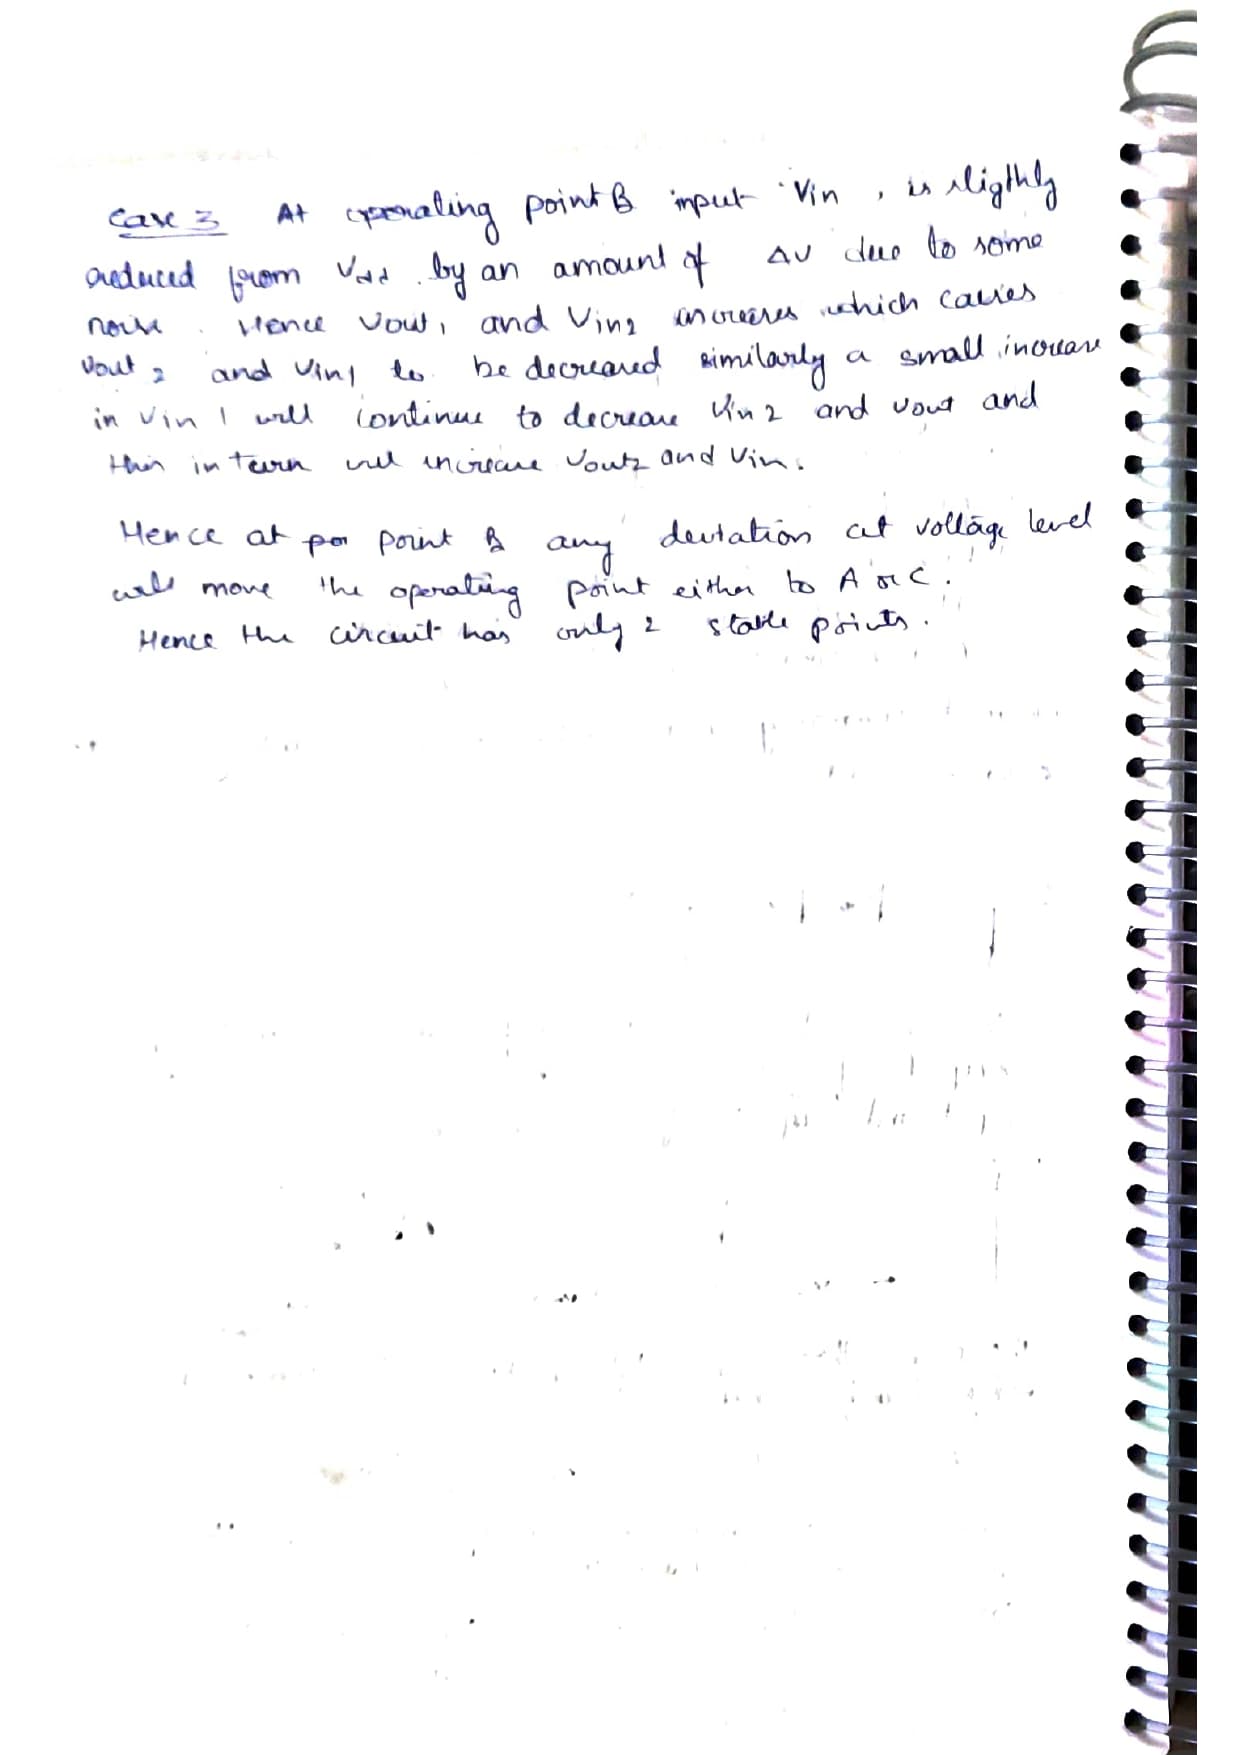 Case 3 At operating point B input Vin, is sligthly
reduced from Vdd. by an amount of ΔV due to some
noise. Hence Vout1 and Vin2 increases which causes
Vout2 and Vin1 to be decreased similarly a small increase
in Vin1 will continue to decrease Vin2 and Vout and
this in turn will increase Vout2 and Vin.
Hence at point B any deviation at voltage level
will move the operating point either to A or C.
Hence the circuit has only 2 stable points.